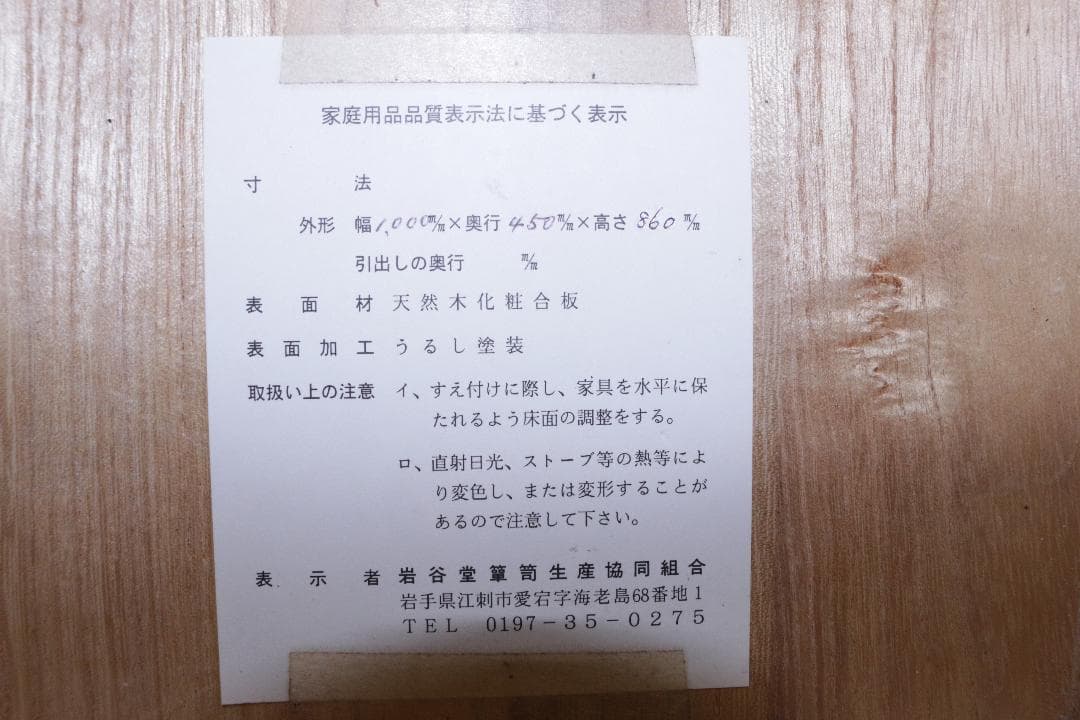 家庭用品品質表示法に基づく表示
寸法
外形 幅1,000m/m×奥行450m/m×高さ860m/m
引出しの奥行 m/m
表面材 天然木化粧合板
表面加工 うるし塗装
取扱い上の注意 イ、すえ付けに際し、家具を水平に保
たれるよう床面の調整をする。
ロ、直射日光、ストーブ等の熱等によ
り変色し、または変形することが
あるので注意して下さい。
表示者 岩谷堂簞笥生産協同組合
岩手県江刺市愛宕字海老島68番地1
TEL 0197-35-0275